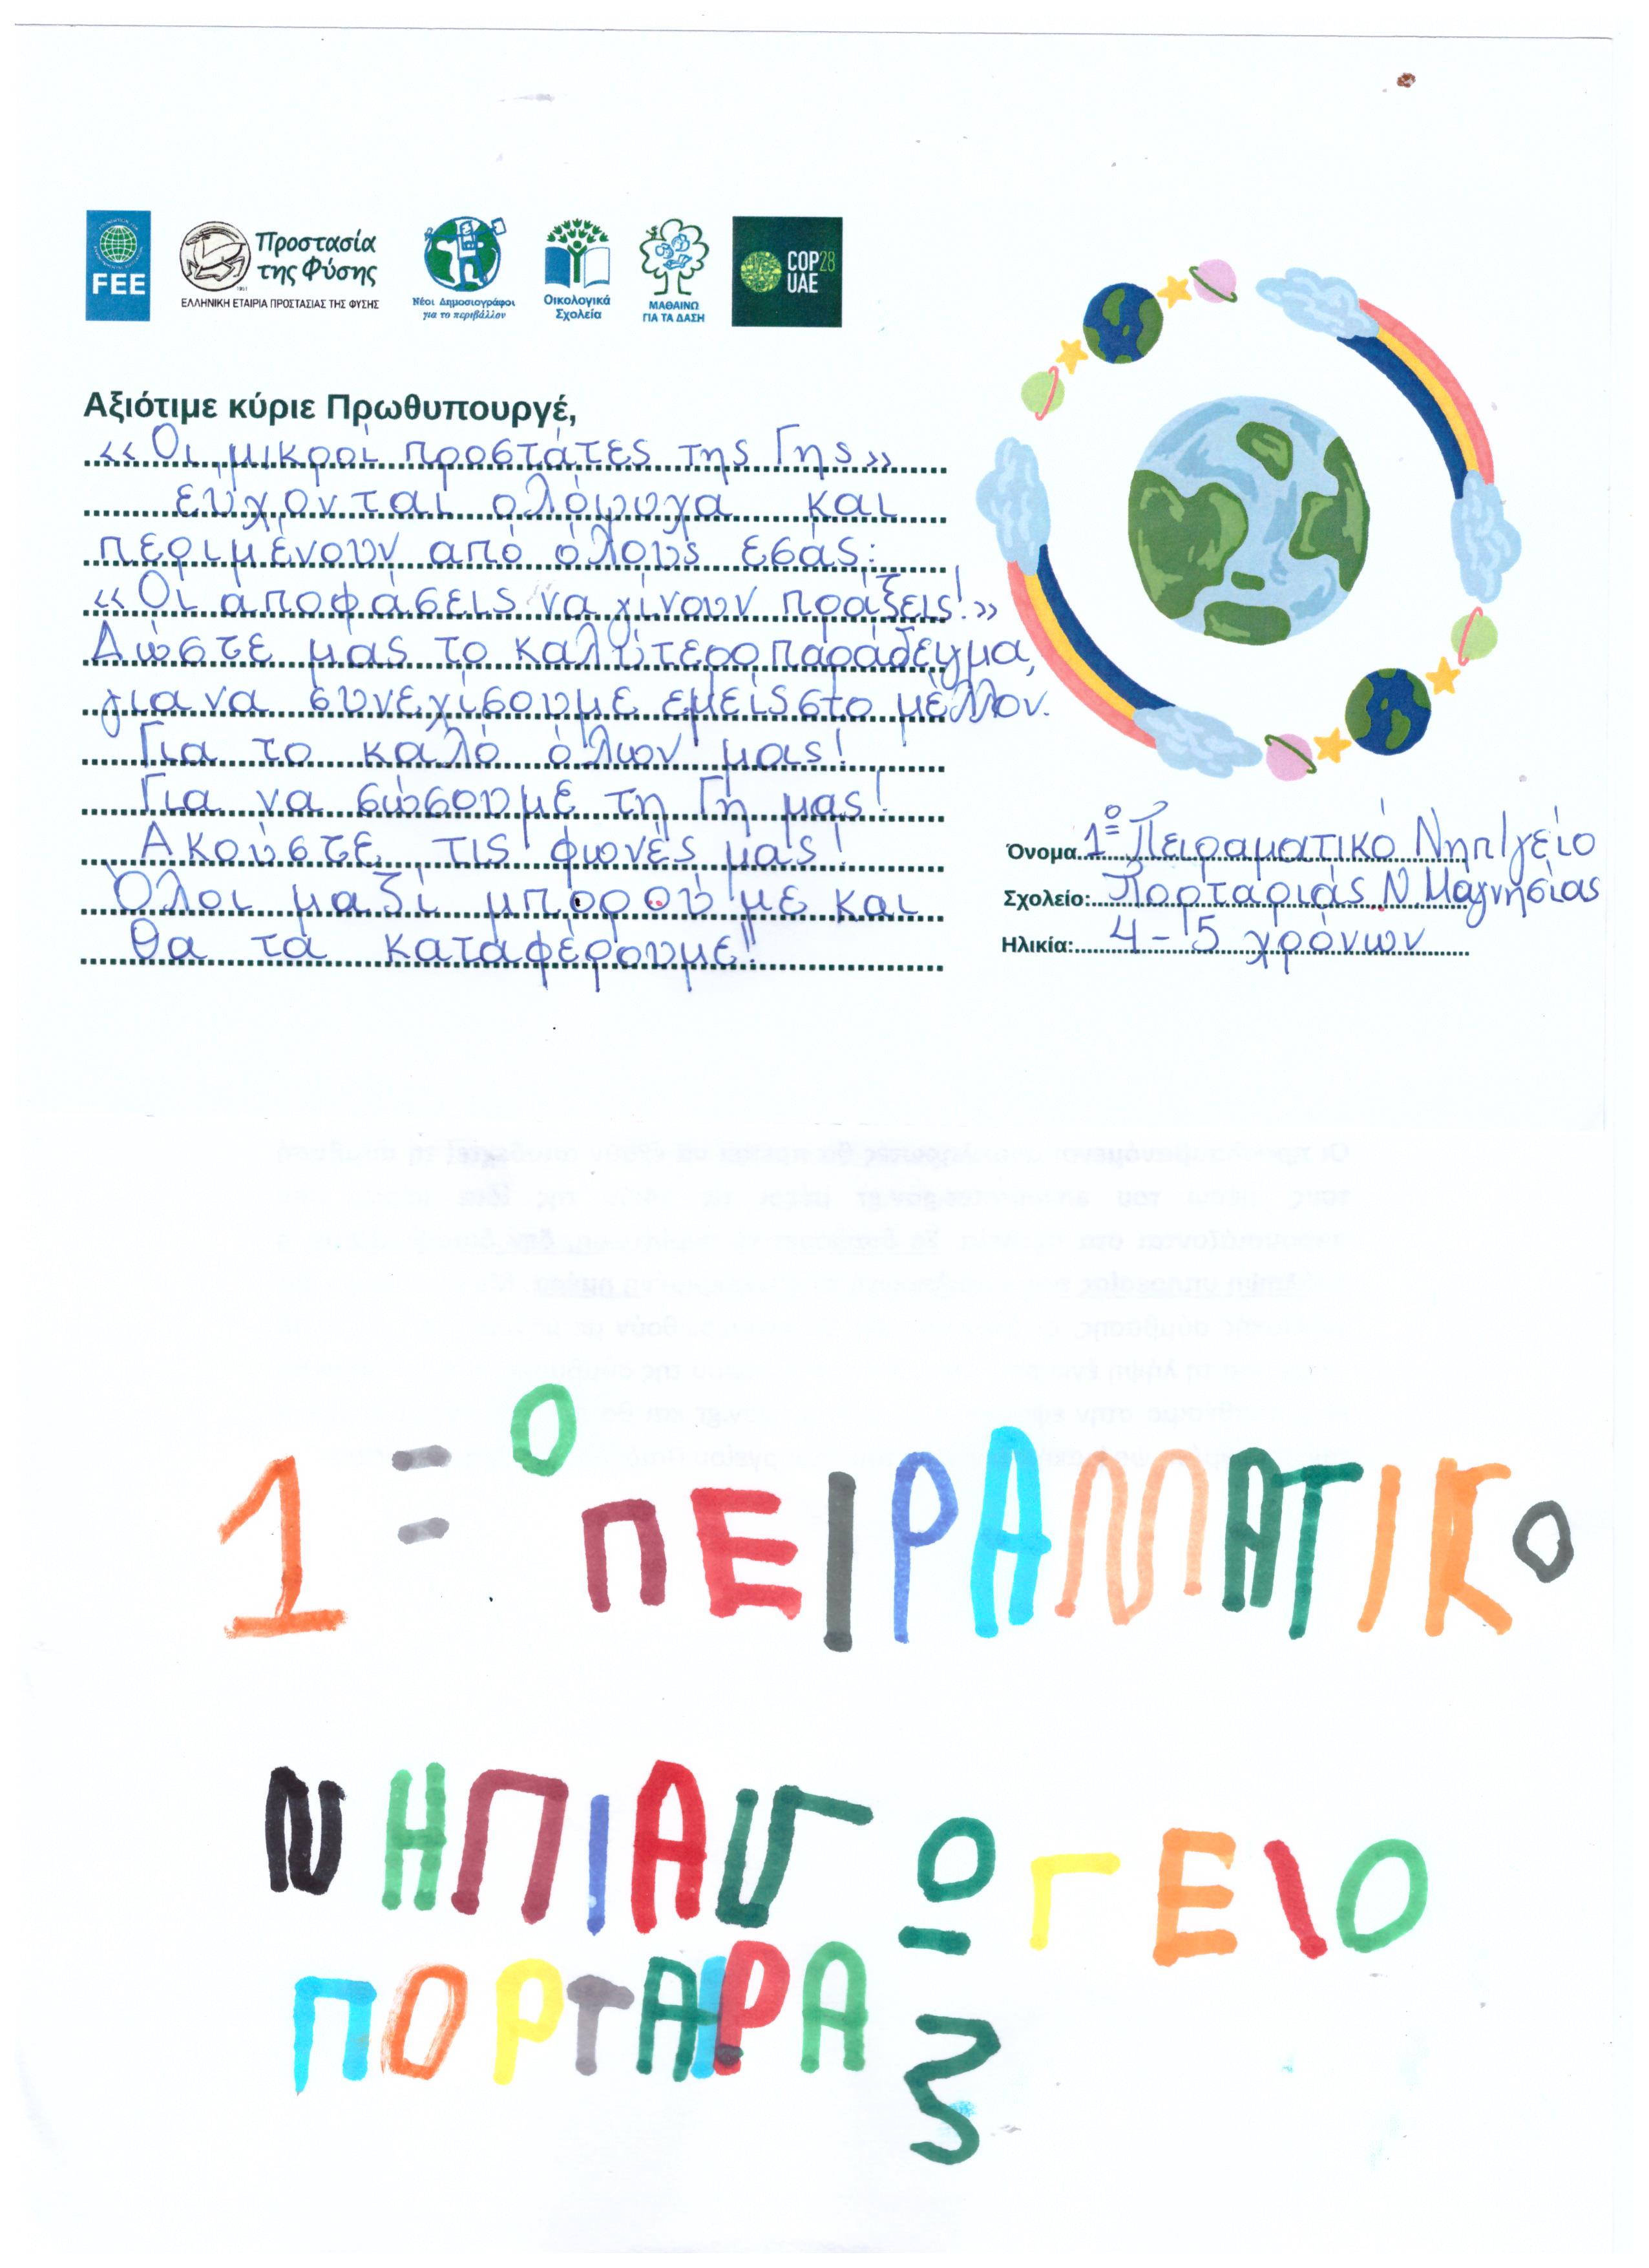 FEE
Προστασία
της Φύσης
1951
ΕΛΛΗΝΙΚΗ ΕΤΑΙΡΙΑ ΠΡΟΣΤΑΣΙΑΣ ΤΗΣ ΦΥΣΗΣ
Νέοι Δημοσιογράφοι
για το περιβάλλον
Οικολογικά
Σχολεία
ΜΑΘΑΙΝΩ
ΓΙΑ ΤΑ ΔΑΣΗ
COP28
UAE
Αξιότιμε κύριε Πρωθυπουργέ,
«Οι μικροί προστάτες της Γης»
εύχονται ολόψυχα και
περιμένουν από όλους εσάς:
«Οι αποφάσεις να γίνουν πράξεις!»
Δώστε μας το καλύτερο παράδειγμα,
για να συνεχίσουμε εμείς στο μέλλον.
Για το καλό όλων μας!
Για να σώσουμε τη Γη μας!
Ακούστε τις φωνές μας!
Όλοι μαζί μπορούμε και
θα τα καταφέρουμε!!
Όνομα 1º Πειραματικό Νηπ/γείο
Σχολείο: Πορταριάς Ν. Μαγνησίας
Ηλικία: 4-5 χρόνων
1 = º ΠΕΙΡΑΜΑΤΙΚΟ
ΝΗΠΙΑΓΟΓΕΙΟ
ΠΟΡΤΑΙΡΑΣ